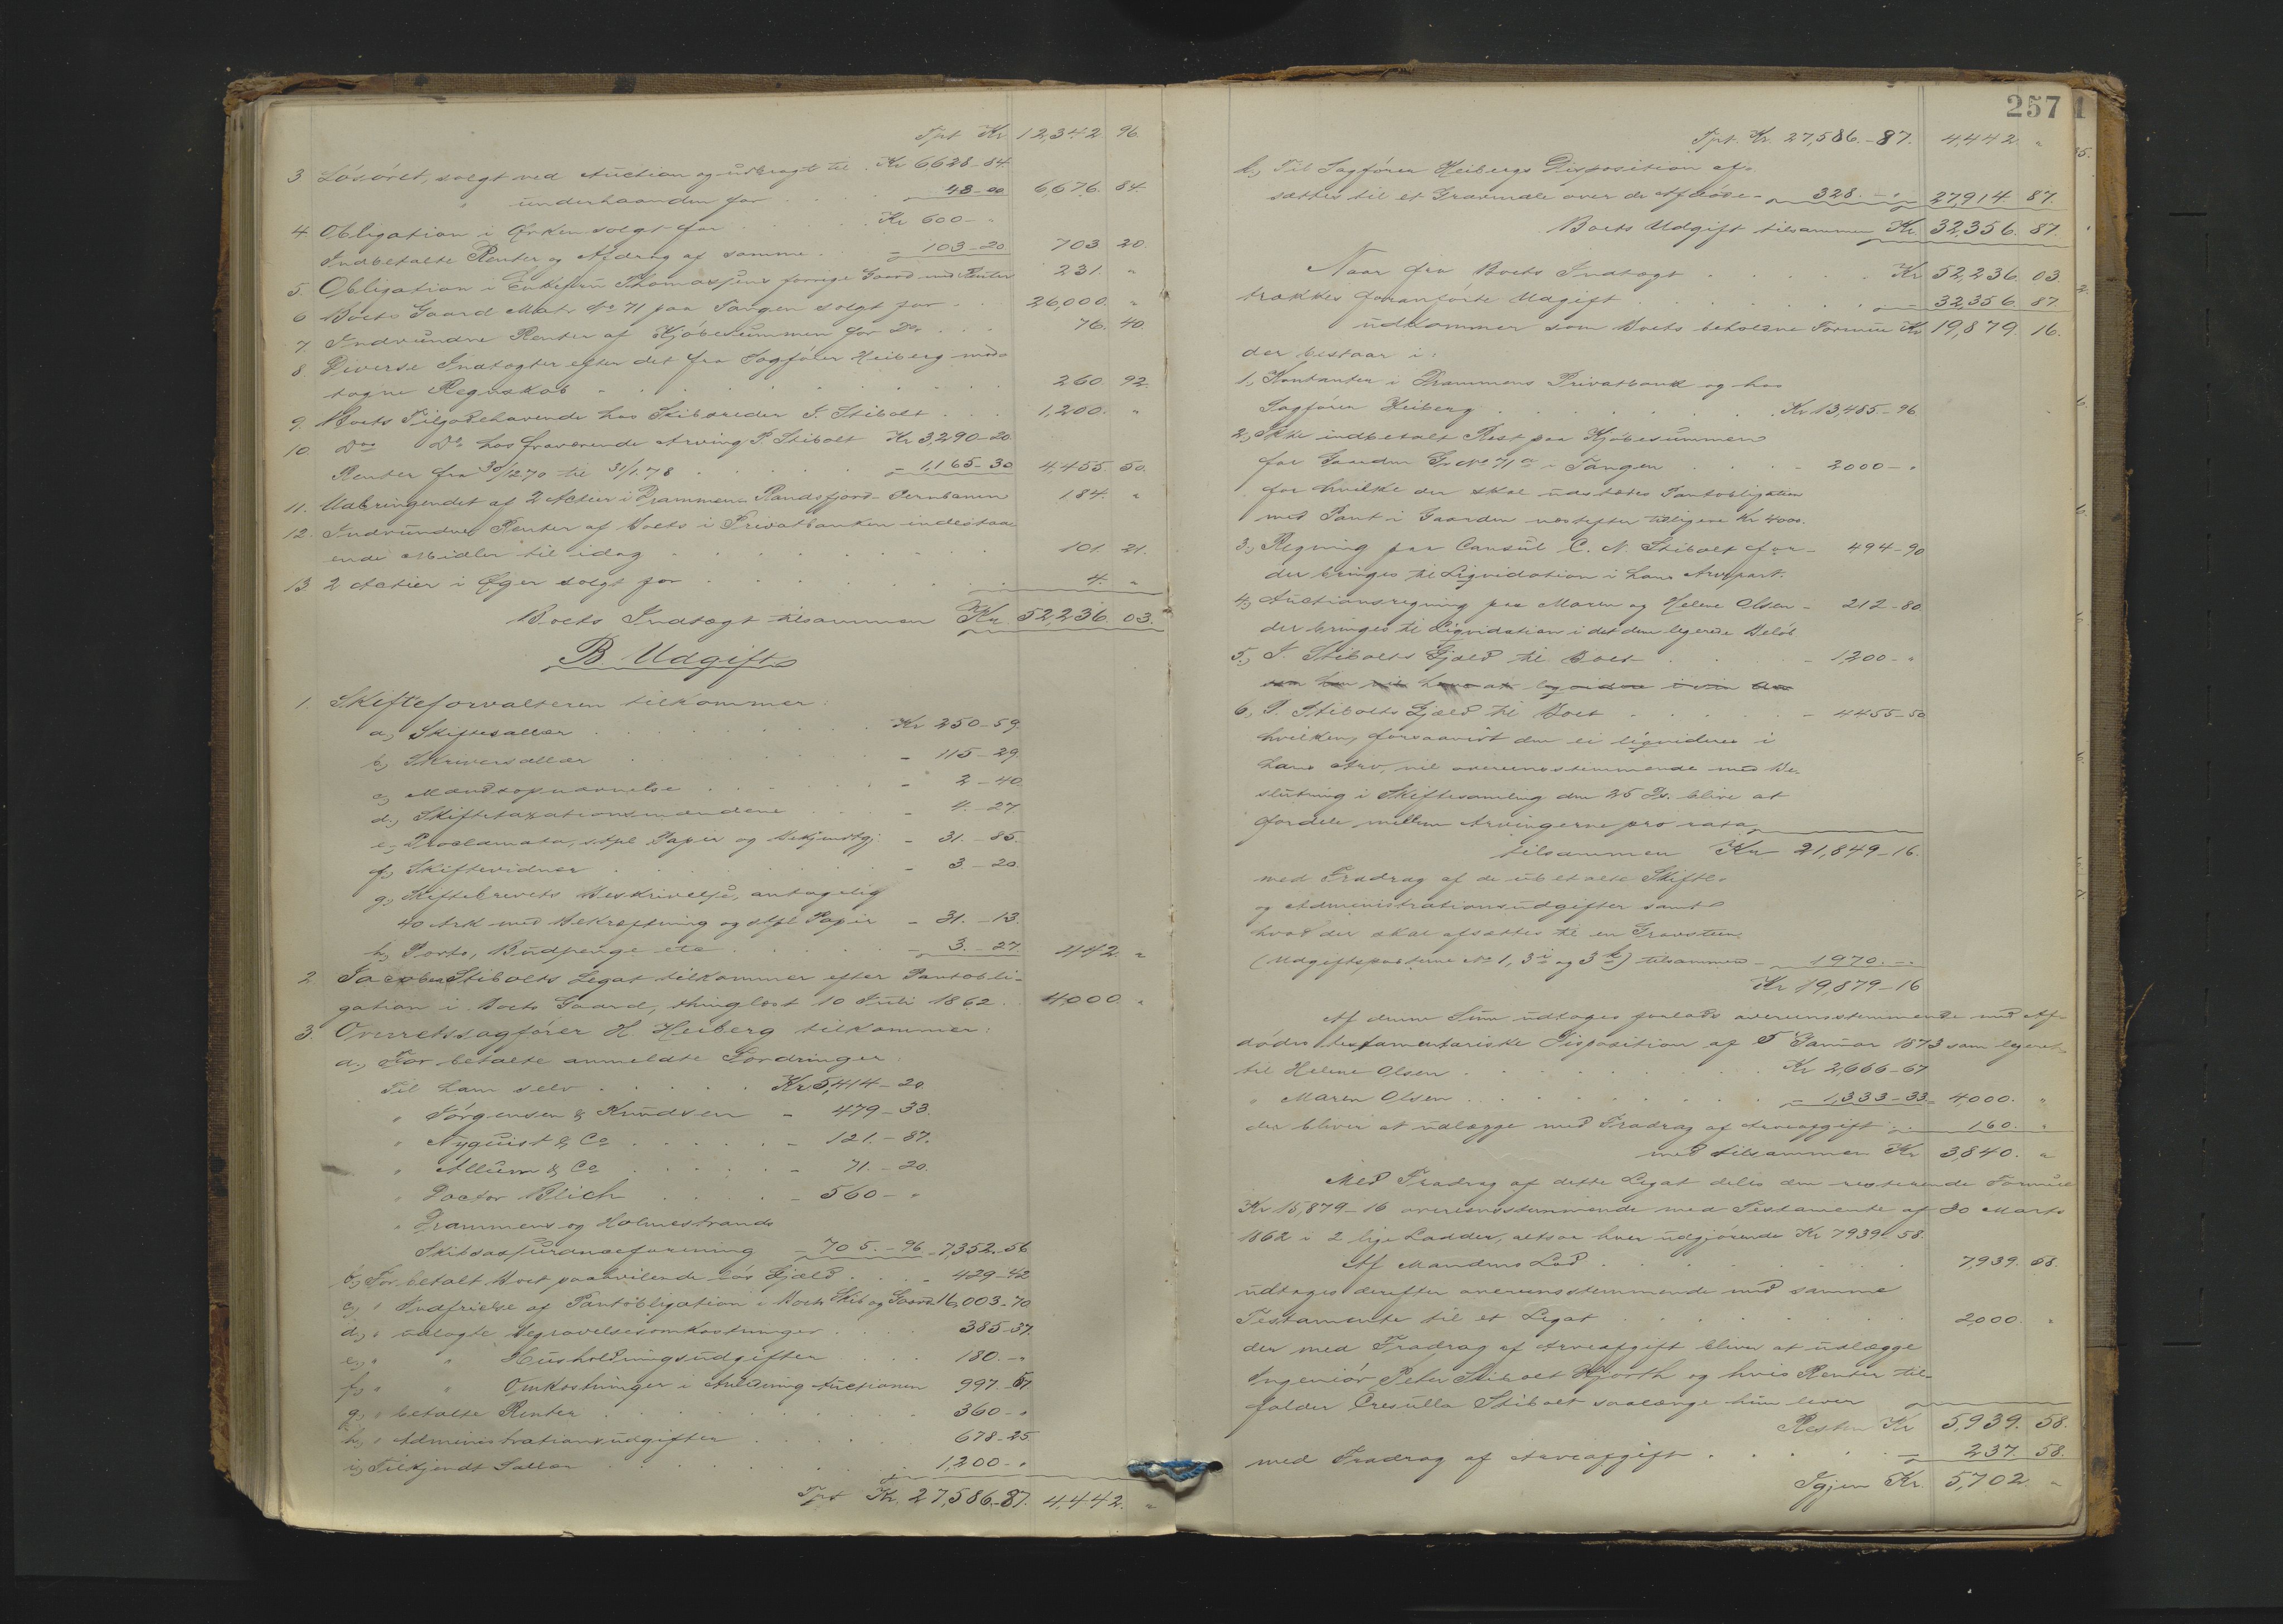 Tpt Kr 12,342 96.
3 Lösöret, solgt ved Auction og udbragt til . Kr 6628-84.
" underhaanden for . . . . - 48-00 6,676. 84.
4 Obligation i Ørken solgt for . . . Kr 600- "
Indbetalte Renter og Afdrag af samme . - 103-20 703 20.
5. Obligation i Thomassens forrige Gaard med Renter 231. "
6 Boets Gaard Matr No 71 paa Tangen solgt for . . . 26,000. "
7. Indvundne Renter af Kjöbesummen for Do . . . 76. 40.
8. Diverse Indtægter efter det fra Sagförer Heiberg mod-
tagne Regnskab . . . . . . 260. 92.
9. Boets Tilgodehavende hos Skibsreder J. Stibolt . . . 1,200. "
10. Do Do hos fraværende Arving P. Stibolt Kr 3,290-20.
Renter fra 30/12 70 til 31/1. 78 . . . . - 1,165-30 4,455 50.
11. Udbringendet af 2 Actier i Drammen-Randsfjord-Jernbanen 184. "
12. Indvundne Renter af Boets i Privatbanken indestaa-
ende Midler til idag . . . . . . 101. 21.
13. 2 Actier i Øger solgt for . . . . . 4. "
Boets Indtægt tilsammen Kr. 52,236. 03.
B Udgift
1. Skifteforvalteren tilkommer:
a, Skiftesallær . . . . . Kr 250-59.
b, Skriversallær . . . . . - 115-29.
c, Mandsopnævnelse . . . . . - 2-40
d, Skiftetaxationsmændene . . . - 4.-27.
e, Proclamata, stpl. Papir og Bekjendtgj. - 31.-85.
f, Skiftevidner . . . . . - 3-20
g, Skiftebrevets Beskrivelse, antagelig
40 Ark med Bekræftning og stpl Papir - 31.-13.
h, Porto, Budpenge etc . . . . - 3.-27. 442. "
2 Jacob Stibolts Legat tilkommer efter Pantobli-
gation i Boets Gaard, thinglæst 10 Juli 1862 . . 4,000. "
3. Overretssagförer H. Heiberg tilkommer:
a., For betalte anmeldte Fordringer:
Til ham selv . . . . . Kr 5,414-20
" Jörgensen & Knudsen - 479-33.
" Nyquist & Co . . . . . - 121.-87.
" Allum & Co . . . . . - 71.-20.
" Doctor Blich . . . . - 560- "
" Drammens og Holmestrands
Skibsassuranceforening - 705.-96 - 7,352.-56
b, For betalt Boet paahvilende lös Gjæld . . . - 429-42
c, " Indfrielse af Pantobligation i Boets Skib og Gaard 16,003-70
d, " udlagte Begravelsesomkostninger . . . 385-37.
e, " " Husholdningsudgifter . . . 180.- "
f, " " Omkostninger i Anledning Auctionen 997.-57
g, " betalte Renter . . . . . 360- "
h, " Administrationsudgifter . . . . 678-25
i, Tilkjendt Sallær . . . . . 1,200- "
Tpt Kr. 27,586.-87. 4,442. "
257
Tpt. Kr. 27,586.-87. 4,442. "
k, Til Sagförer Heibergs Disposition af-
sættes til et Gravmæle over de Afdöde - 328.- " 27,914 87.
Boets Udgift tilsammen Kr 32,356. 87.
Naar fra Boets Indtægt . . . . . Kr 52,236. 03.
trækkes foranförte Udgift . . . . . - 32,356. 87
udkommer som Boets beholdne Formue Kr 19,879. 16.
der bestaar i:
1, Kontanter i Drammens Privatbank og hos
Sagförer Heiberg . . . . . . Kr 13,485.-96
2, Ikke indbetalt Rest paa Kjöbesummen
for Gaarden Gr No 71 a - Tangen . . . - 2000- "
for hvilke der skal udstedes Pantobligation
med Pant i Gaarden næstefter tidligere Kr 4000.
3., Regning paa Consul C. N. Stibolt for - 494-90
der bringes til Liqvidation i hans Arvepart.
4, Auctionsregning paa Maren og Helene Olsen - 212-80
der bringes til Liqvidation i det dem legerede Belöb
5., J. Stibolts Gjæld til Boet . . . - 1200- "
6, P. Stibolts Gjæld til Boet . . . . - 4455-50
hvilken, forsaavidt den ei liqvideres i
hans Arv, vil overensstemmende med Be-
slutning i Skiftesamling den 25 Ds. blive at
fordele mellem Arvingerne pro rata
tilsammen Kr 21,849-16.
med Fradrag af de ubetalte Skifte-
og Administrationsudgifter samt
hvad der skal afsættes til en Gravsteen
(Udgiftsposterne No 1, 3 i og 3 k) tilsammen - 1970.- "
Kr 19,879-16
Af denne Sum udtages forlods overensstemmende med Af-
dödes testamentariske Disposition af 5 Januar 1873 som legeret
til Helene Olsen . . . . . . Kr 2,666-67
" Maren Olsen . . . . . . - 1,333-33 - 4,000. "
der bliver at udlægge med Fradrag af Arveafgift . . - 160. "
med tilsammen Kr 3,840. "
Med Fradrag af dette Legat deles den resterende Formue
Kr 15,879-16 overensstemmende med Testamente af 20 Marts
1862 i 2 lige Lodder, altsaa hver udgjörende Kr 7939.58.
Af Mandens Lod . . . . . . 7,939. 58.
udtages derefter overensstemmende med samme
Testamente til et Legat . . . . . 2,000. "
der med Fradrag af Arveafgift bliver at udlægge
Ingeniör Peter Stibolt Hjorth og hvis Renter til-
falder Cresulla Stibolt saalænge hun lever
Resten Kr 5,939. 58.
med Fradrag af Arveafgift . . . . . - 237. 58.
Igjen Kr. 5,702. "